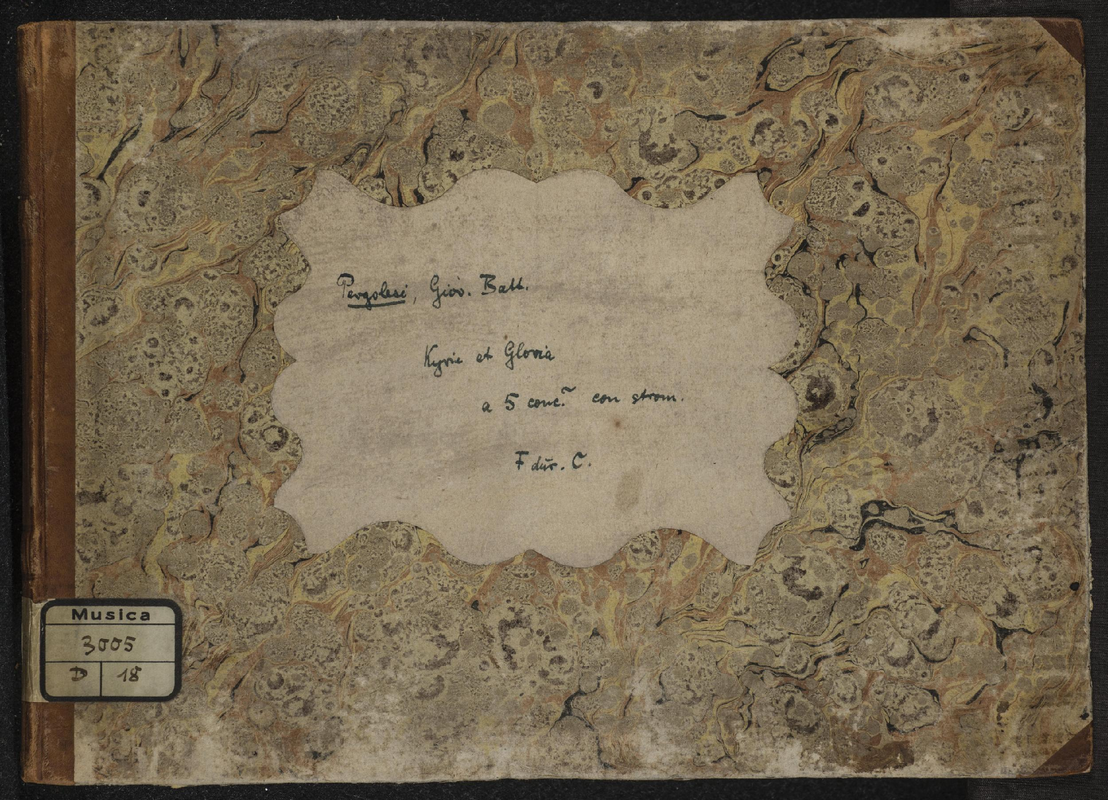 Pergolesi, Giov. Batt.
Kyrie et Gloria
a 5 conc.̃ con strom.
F dūr. C.
Musica
3005
D 18